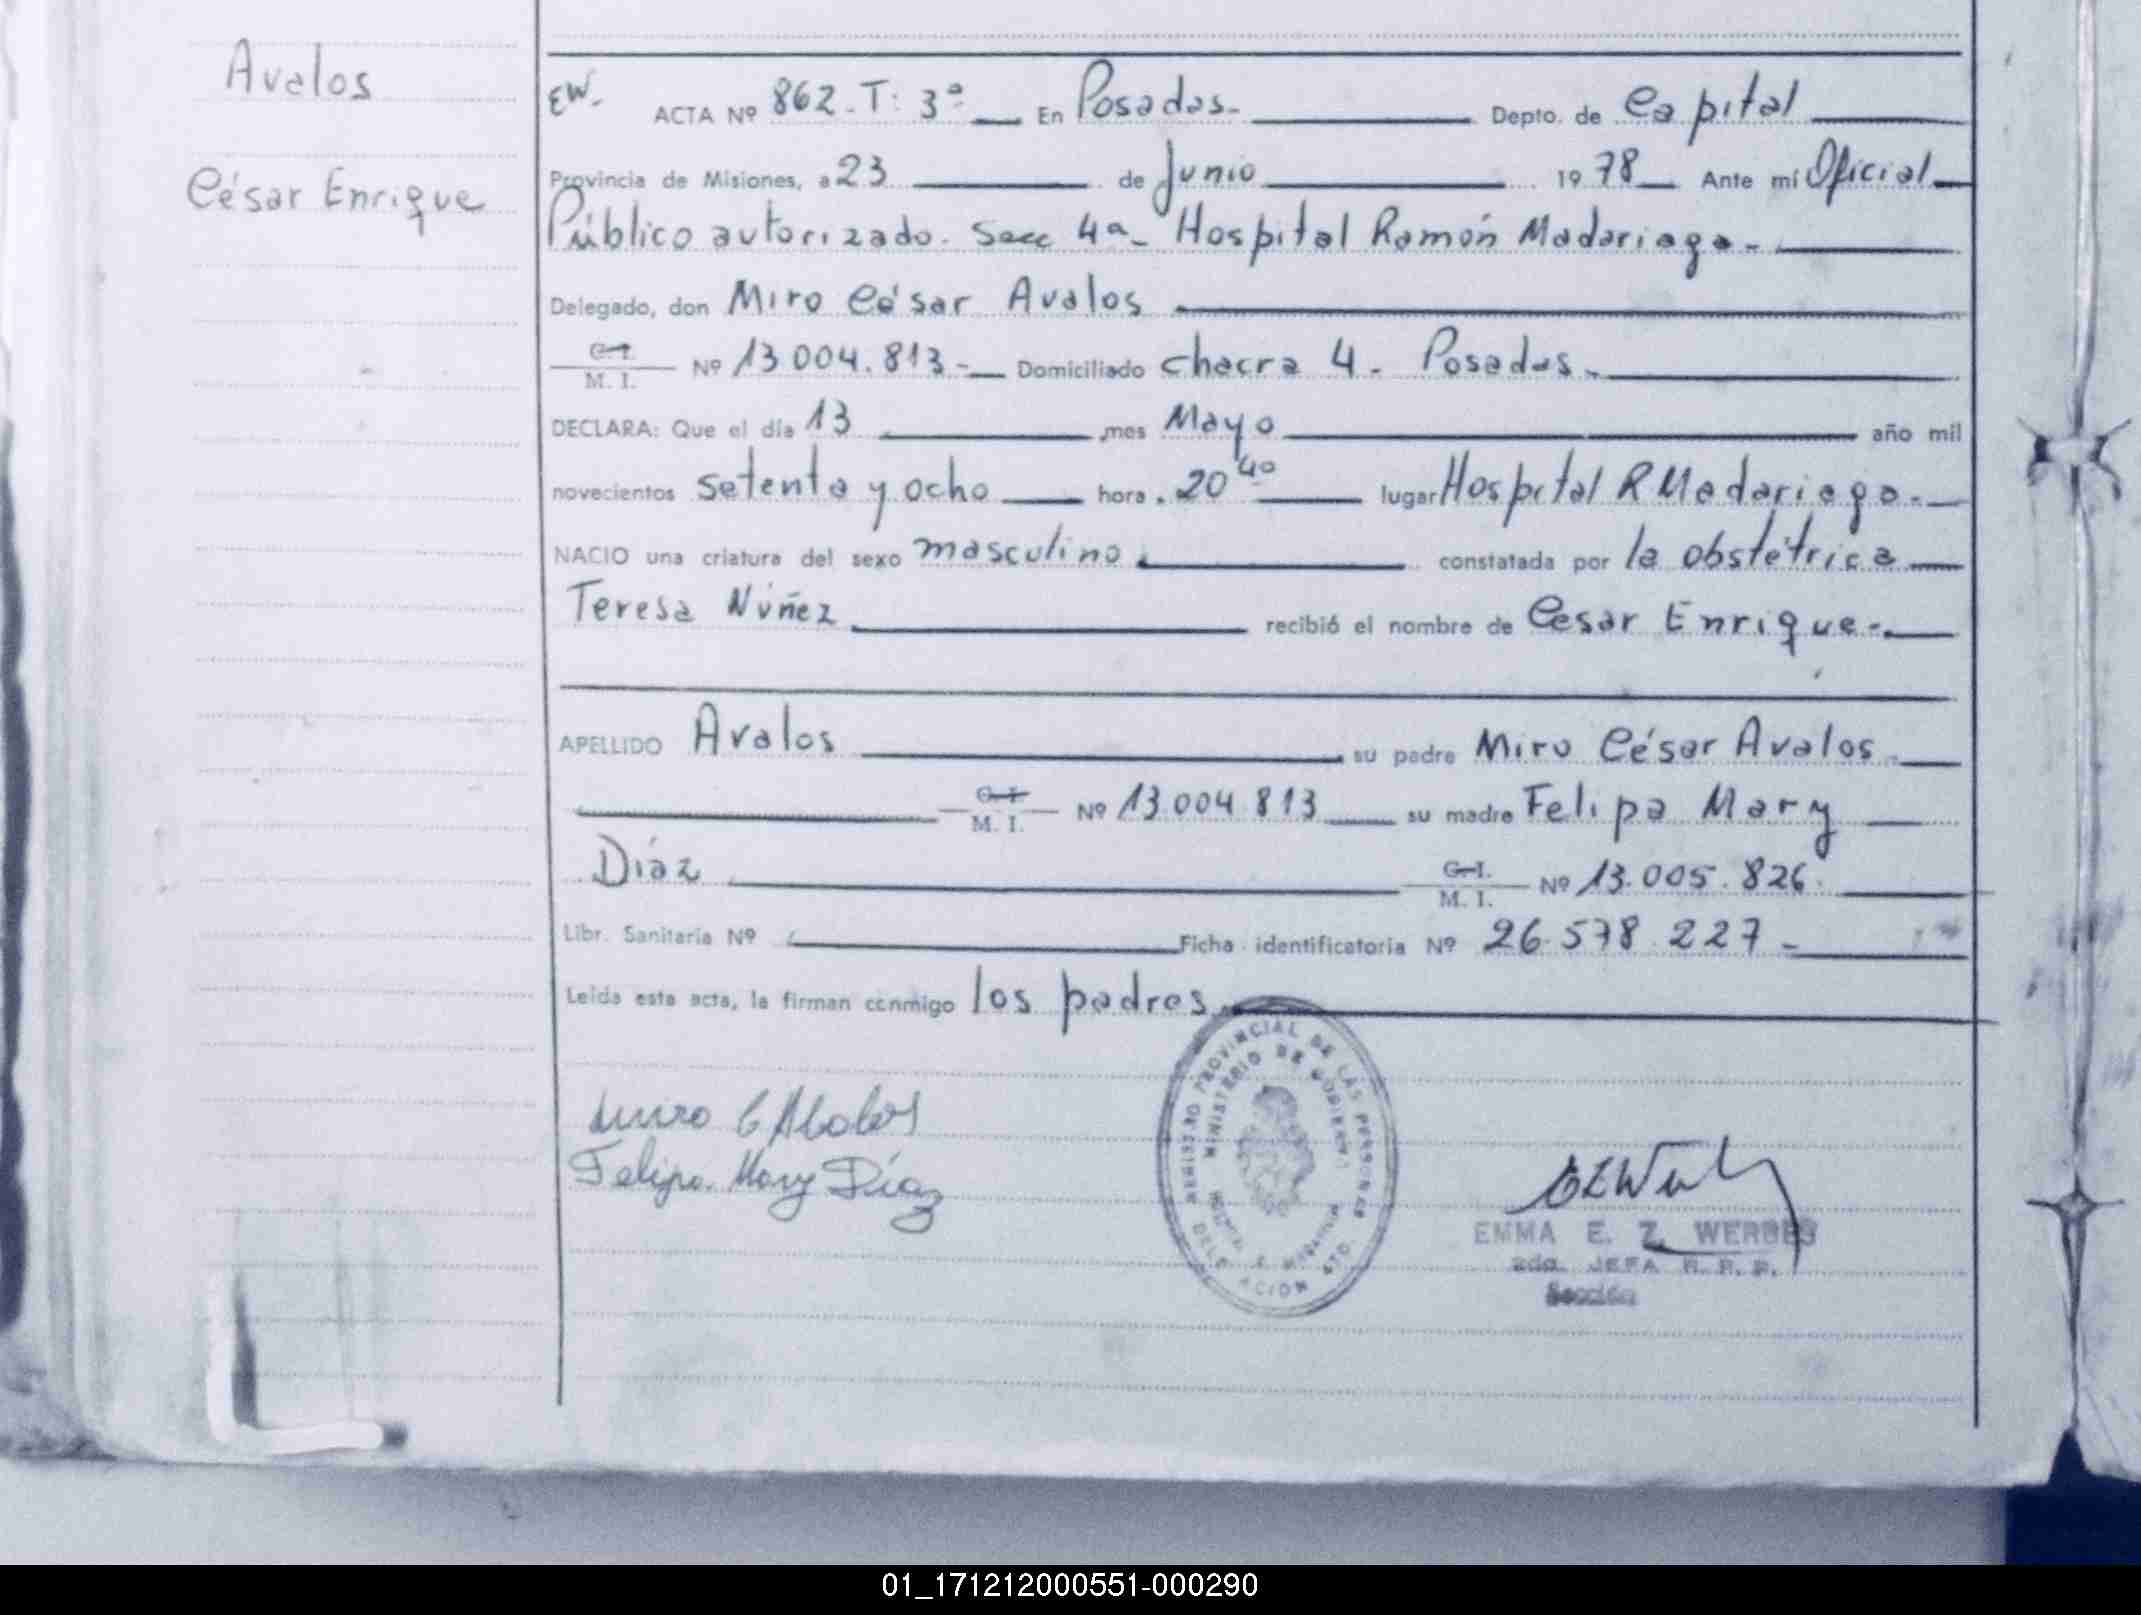 Avalos
César Enrique
EW. ACTA Nº 862. T: 3ª En Posadas. Depto. de Capital
Provincia de Misiones, a 23 de Junio 1978 Ante mí Oficial
Público autorizado. Secc 4ª - Hospital Ramón Madariaga.
Delegado, don Miro César Avalos
C. I. M. I. Nº 13 004. 813 - Domiciliado chacra 4 - Posadas.
DECLARA: Que el día 13 mes Mayo año mil
novecientos setenta y ocho hora 20 40 lugar Hospital R Madariaga.
NACIO una criatura del sexo masculino constatada por la obstétrica
Teresa Núñez recibió el nombre de Cesar Enrique.
APELLIDO Avalos su padre Miro César Avalos
C. I. M. I. Nº 13.004.813 su madre Felipa Mary
Díaz C. I. M. I. Nº 13.005.826
Libr. Sanitaria Nº Ficha identificatoria Nº 26.578.227 -
Leída esta acta, la firman conmigo los padres
Felipa Mary Díaz
REGISTRO PROVINCIAL DE LAS PERSONAS
MINISTERIO DE GOBIERNO
EMMA E. Z. WERBES
2da. JEFA R. P. P.
Sección
01_171212000551-000290